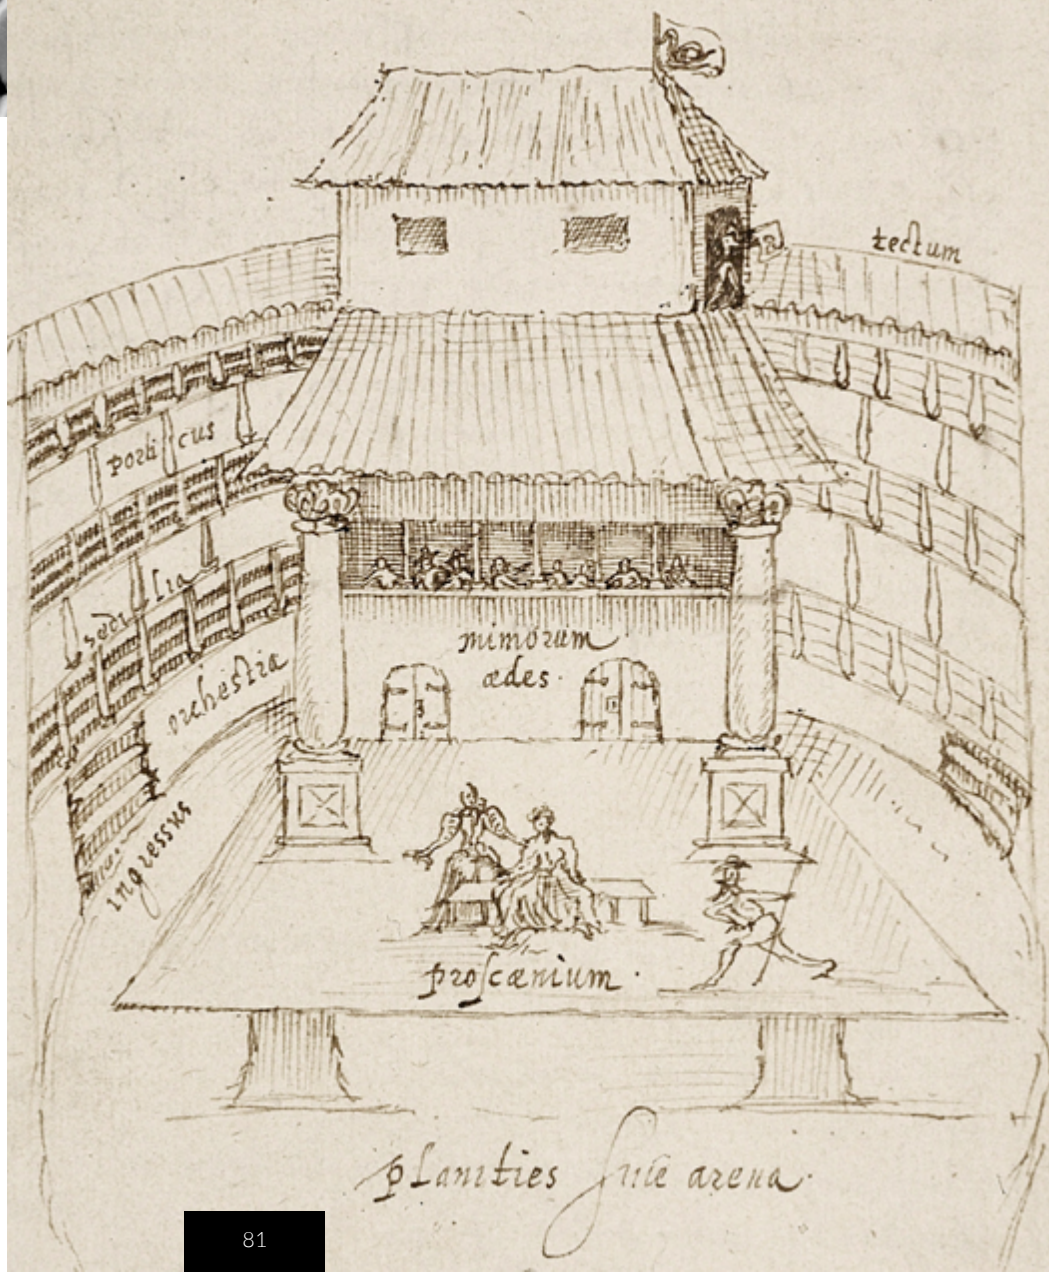 tectum
porticus
sedilia
orchestra
mimorum
ædes.
ingressus
proſcænium.
planities ſiue arena.
81